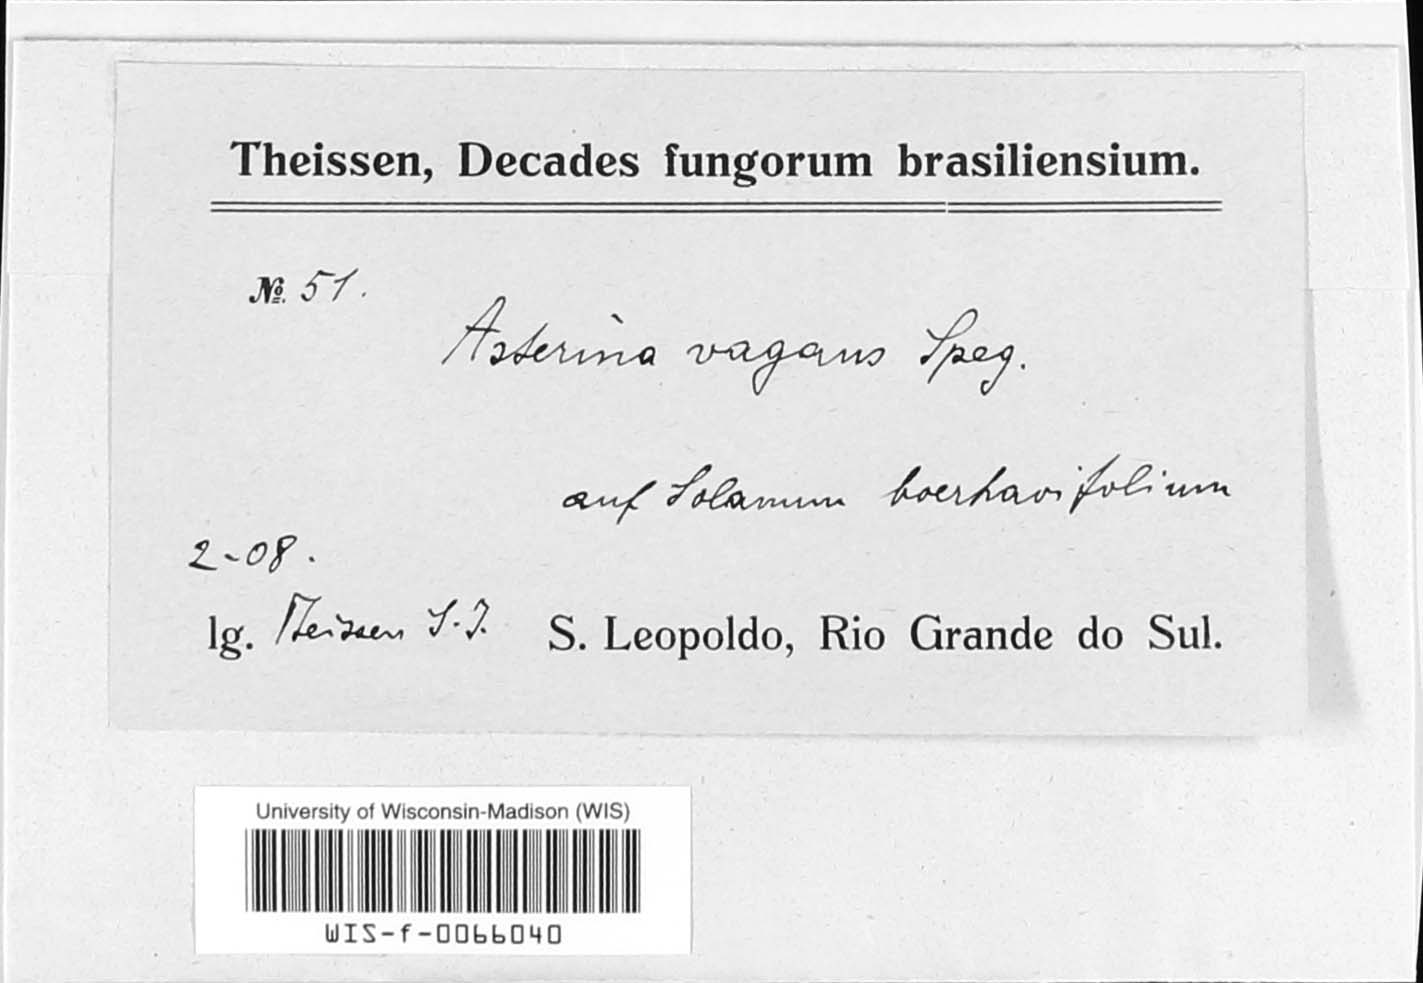 Theissen, Decades fungorum brasiliensium.
№. 51.
Asterina vagans Speg.
auf Solanum boerhavifolium
2-08.
lg. Theissen S.J. S. Leopoldo, Rio Grande do Sul.
University of Wisconsin-Madison (WIS)
WIS-f-0066040